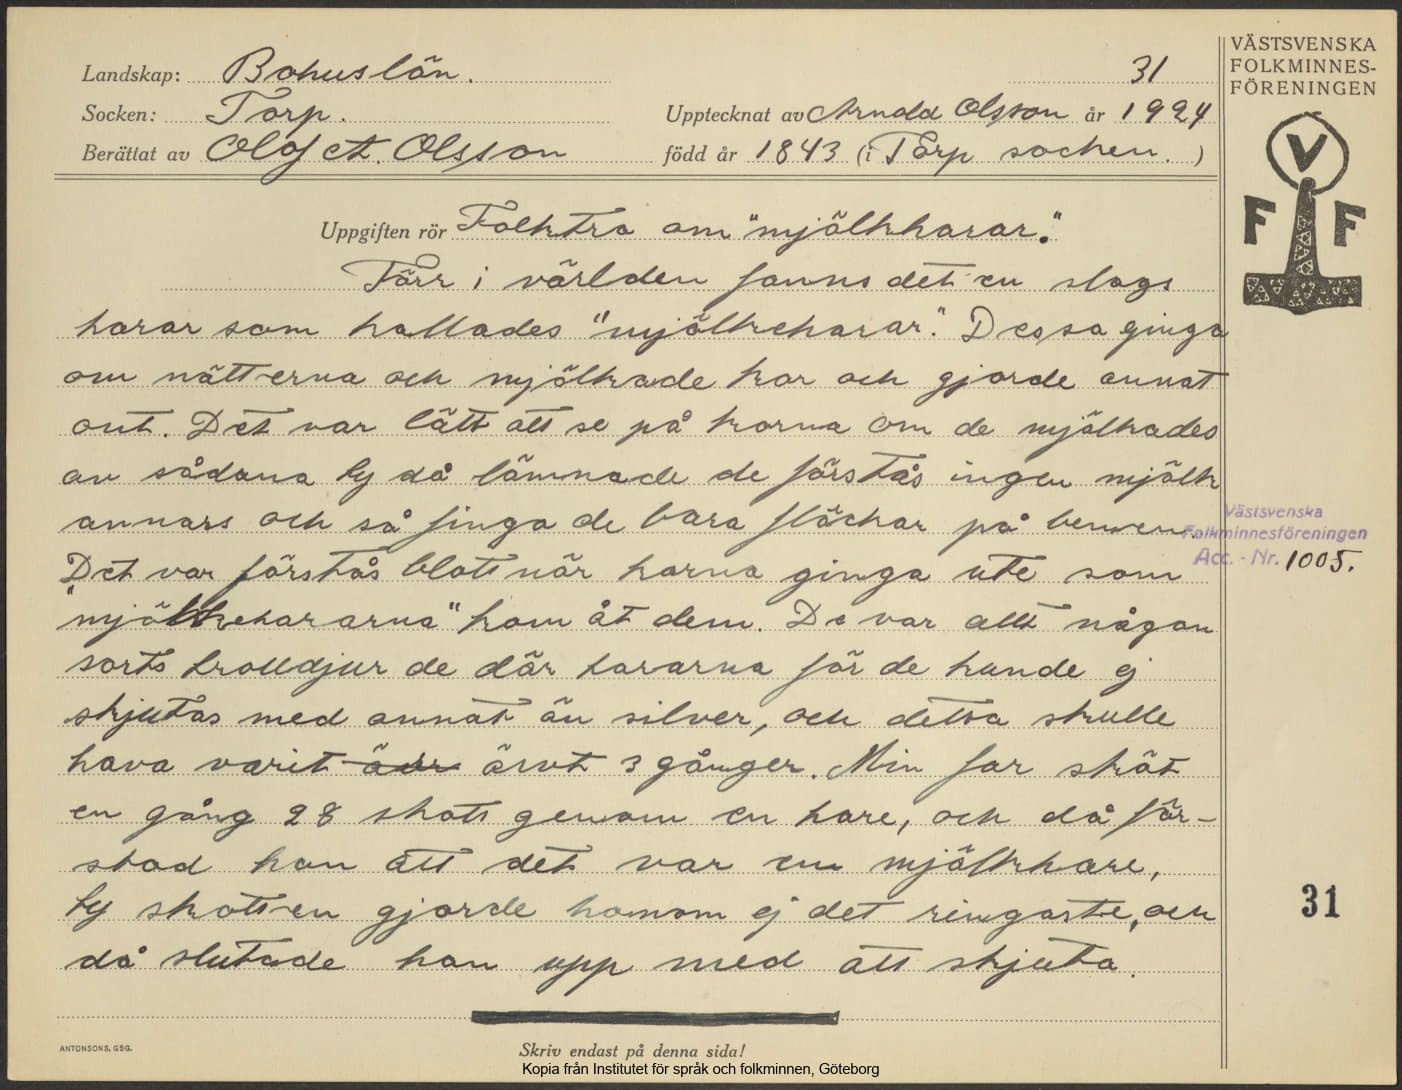 VÄSTSVENSKA
FOLKMINNES-
FÖRENINGEN
V
F F
Landskap: Bohuslän. 31
Socken: Torp. Upptecknat av Arnold Olsson år 1924
Berättat av Olof A. Olsson född år 1843 (i Torp socken.)
Uppgiften rör Folktro om "mjölkharar".
Förr i världen fanns det en slags
harar som kallades "mjölkeharar". Dessa ginga
om nätterna och mjölkade kor och gjorde annat
ont. Det var lätt att se på korna om de mjölkades
av sådana ty då lämnade de förstås ingen mjölk
annars och så finga de bara fläckar på benen.
Det var förstås blott när korna ginga ute som
"mjölkehararna" kom åt dem. De var allt någon
sorts trolldjur de där hararna för de kunde ej
skjutas med annat än silver, och detta skulle
hava varit ärvt 3 gånger. Min far sköt
en gång 28 skott genom en hare, och då för-
stod han att det var en mjölkhare,
ty skotten gjorde honom ej det ringaste, och
då slutade han upp med att skjuta.
Västsvenska
Folkminnesföreningen
Acc. - Nr. 1005.
31
ANTONSONS, GBG.
Skriv endast på denna sida!
Kopia från Institutet för språk och folkminnen, Göteborg